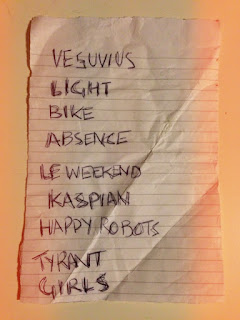 VESUVIUS
LIGHT
BIKE
ABSENCE
LE WEEKEND
KASPIAN
HAPPY ROBOTS
TYRANT
GIRLS